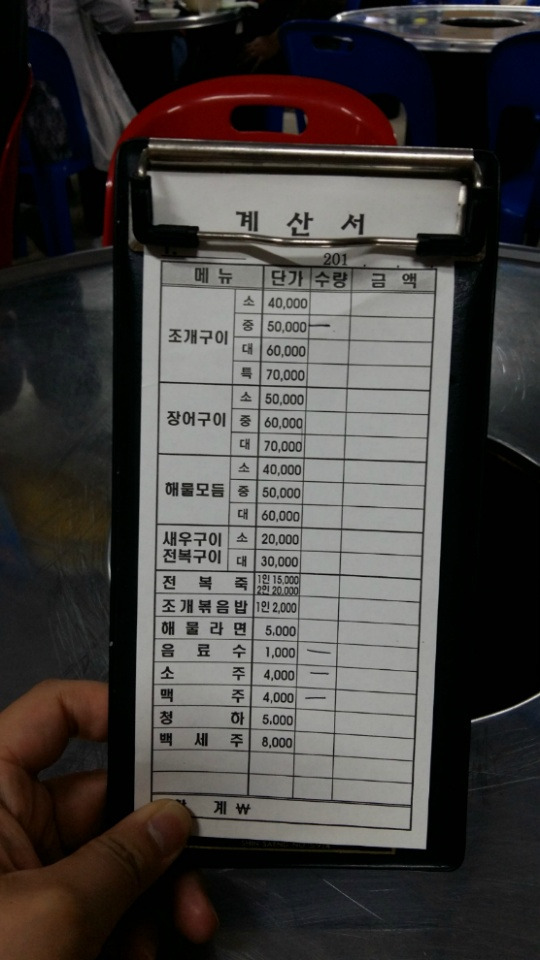 계 산 서
201 . .
메 뉴 단가 수량 금 액
조개구이 소 40,000
중 50,000 一
대 60,000
특 70,000
장어구이 소 50,000
중 60,000
대 70,000
해물모듬 소 40,000
중 50,000
대 60,000
새우구이 소 20,000
전복구이 대 30,000
전 복 죽 1인 15,000
2인 20,000
조개볶음밥 1인 2,000
해 물 라 면 5,000
음 료 수 1,000 一
소 주 4,000 一
맥 주 4,000 一
청 하 5,000
백 세 주 8,000
계 ₩